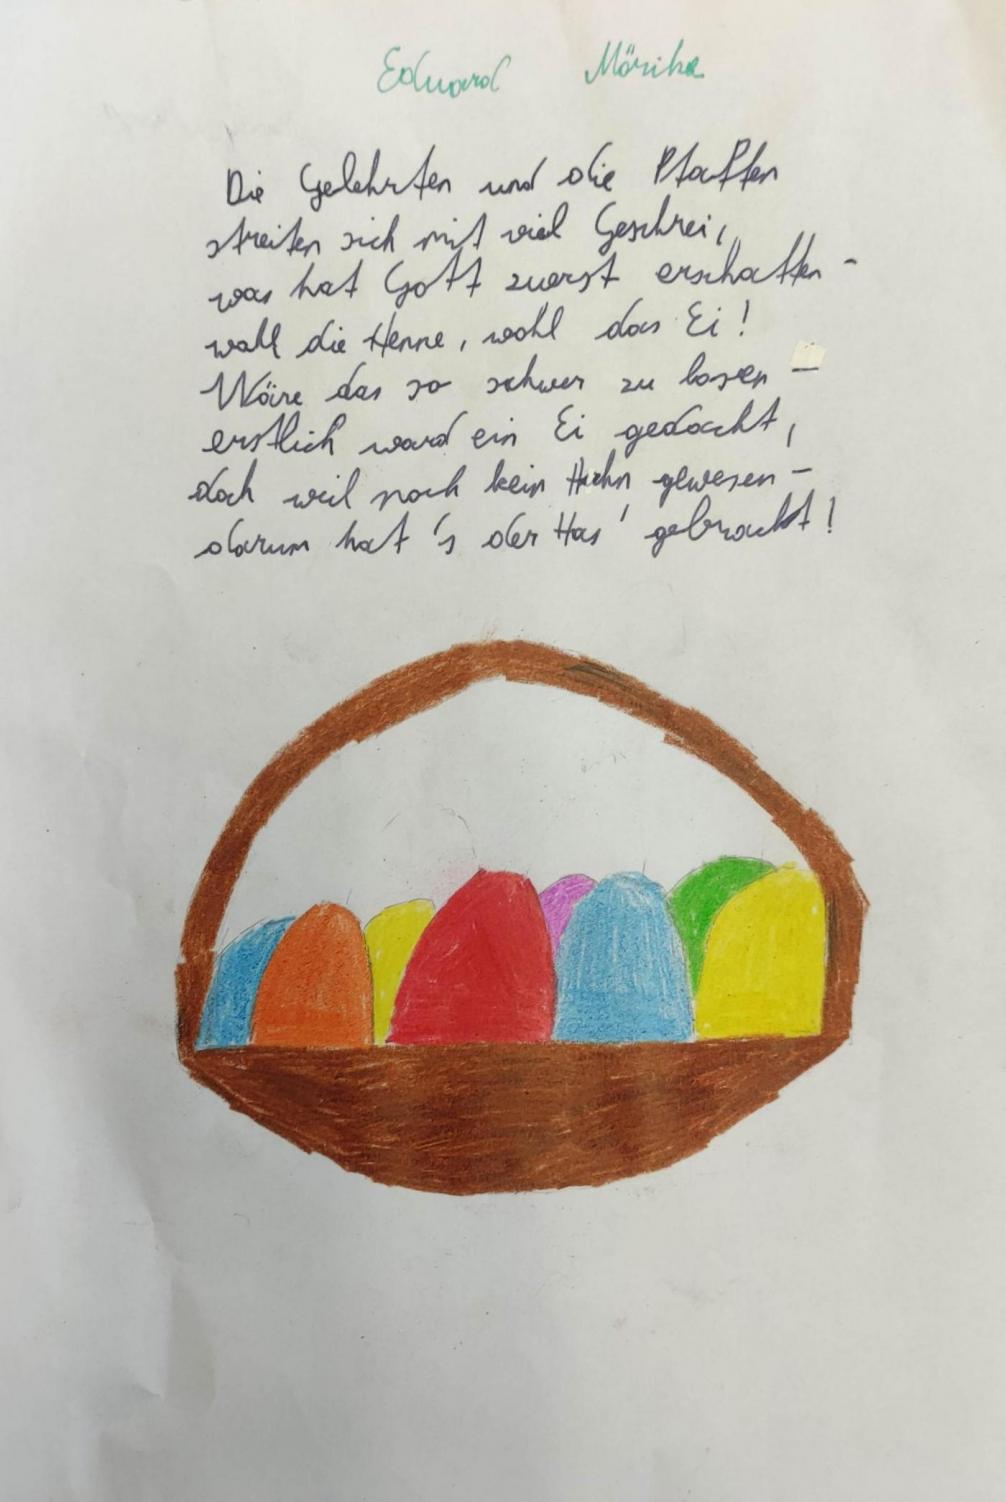 Eduard Mörike
Die Gelehrten und die Pfaffen
streiten sich mit viel Geschrei,
was hat Gott zuerst erschaffen -
wohl die Henne, wohl das Ei!
Wäre das so schwer zu lösen -
erstlich ward ein Ei gedacht,
doch weil noch kein Huhn gewesen -
darum hat 's der Has' gebracht!